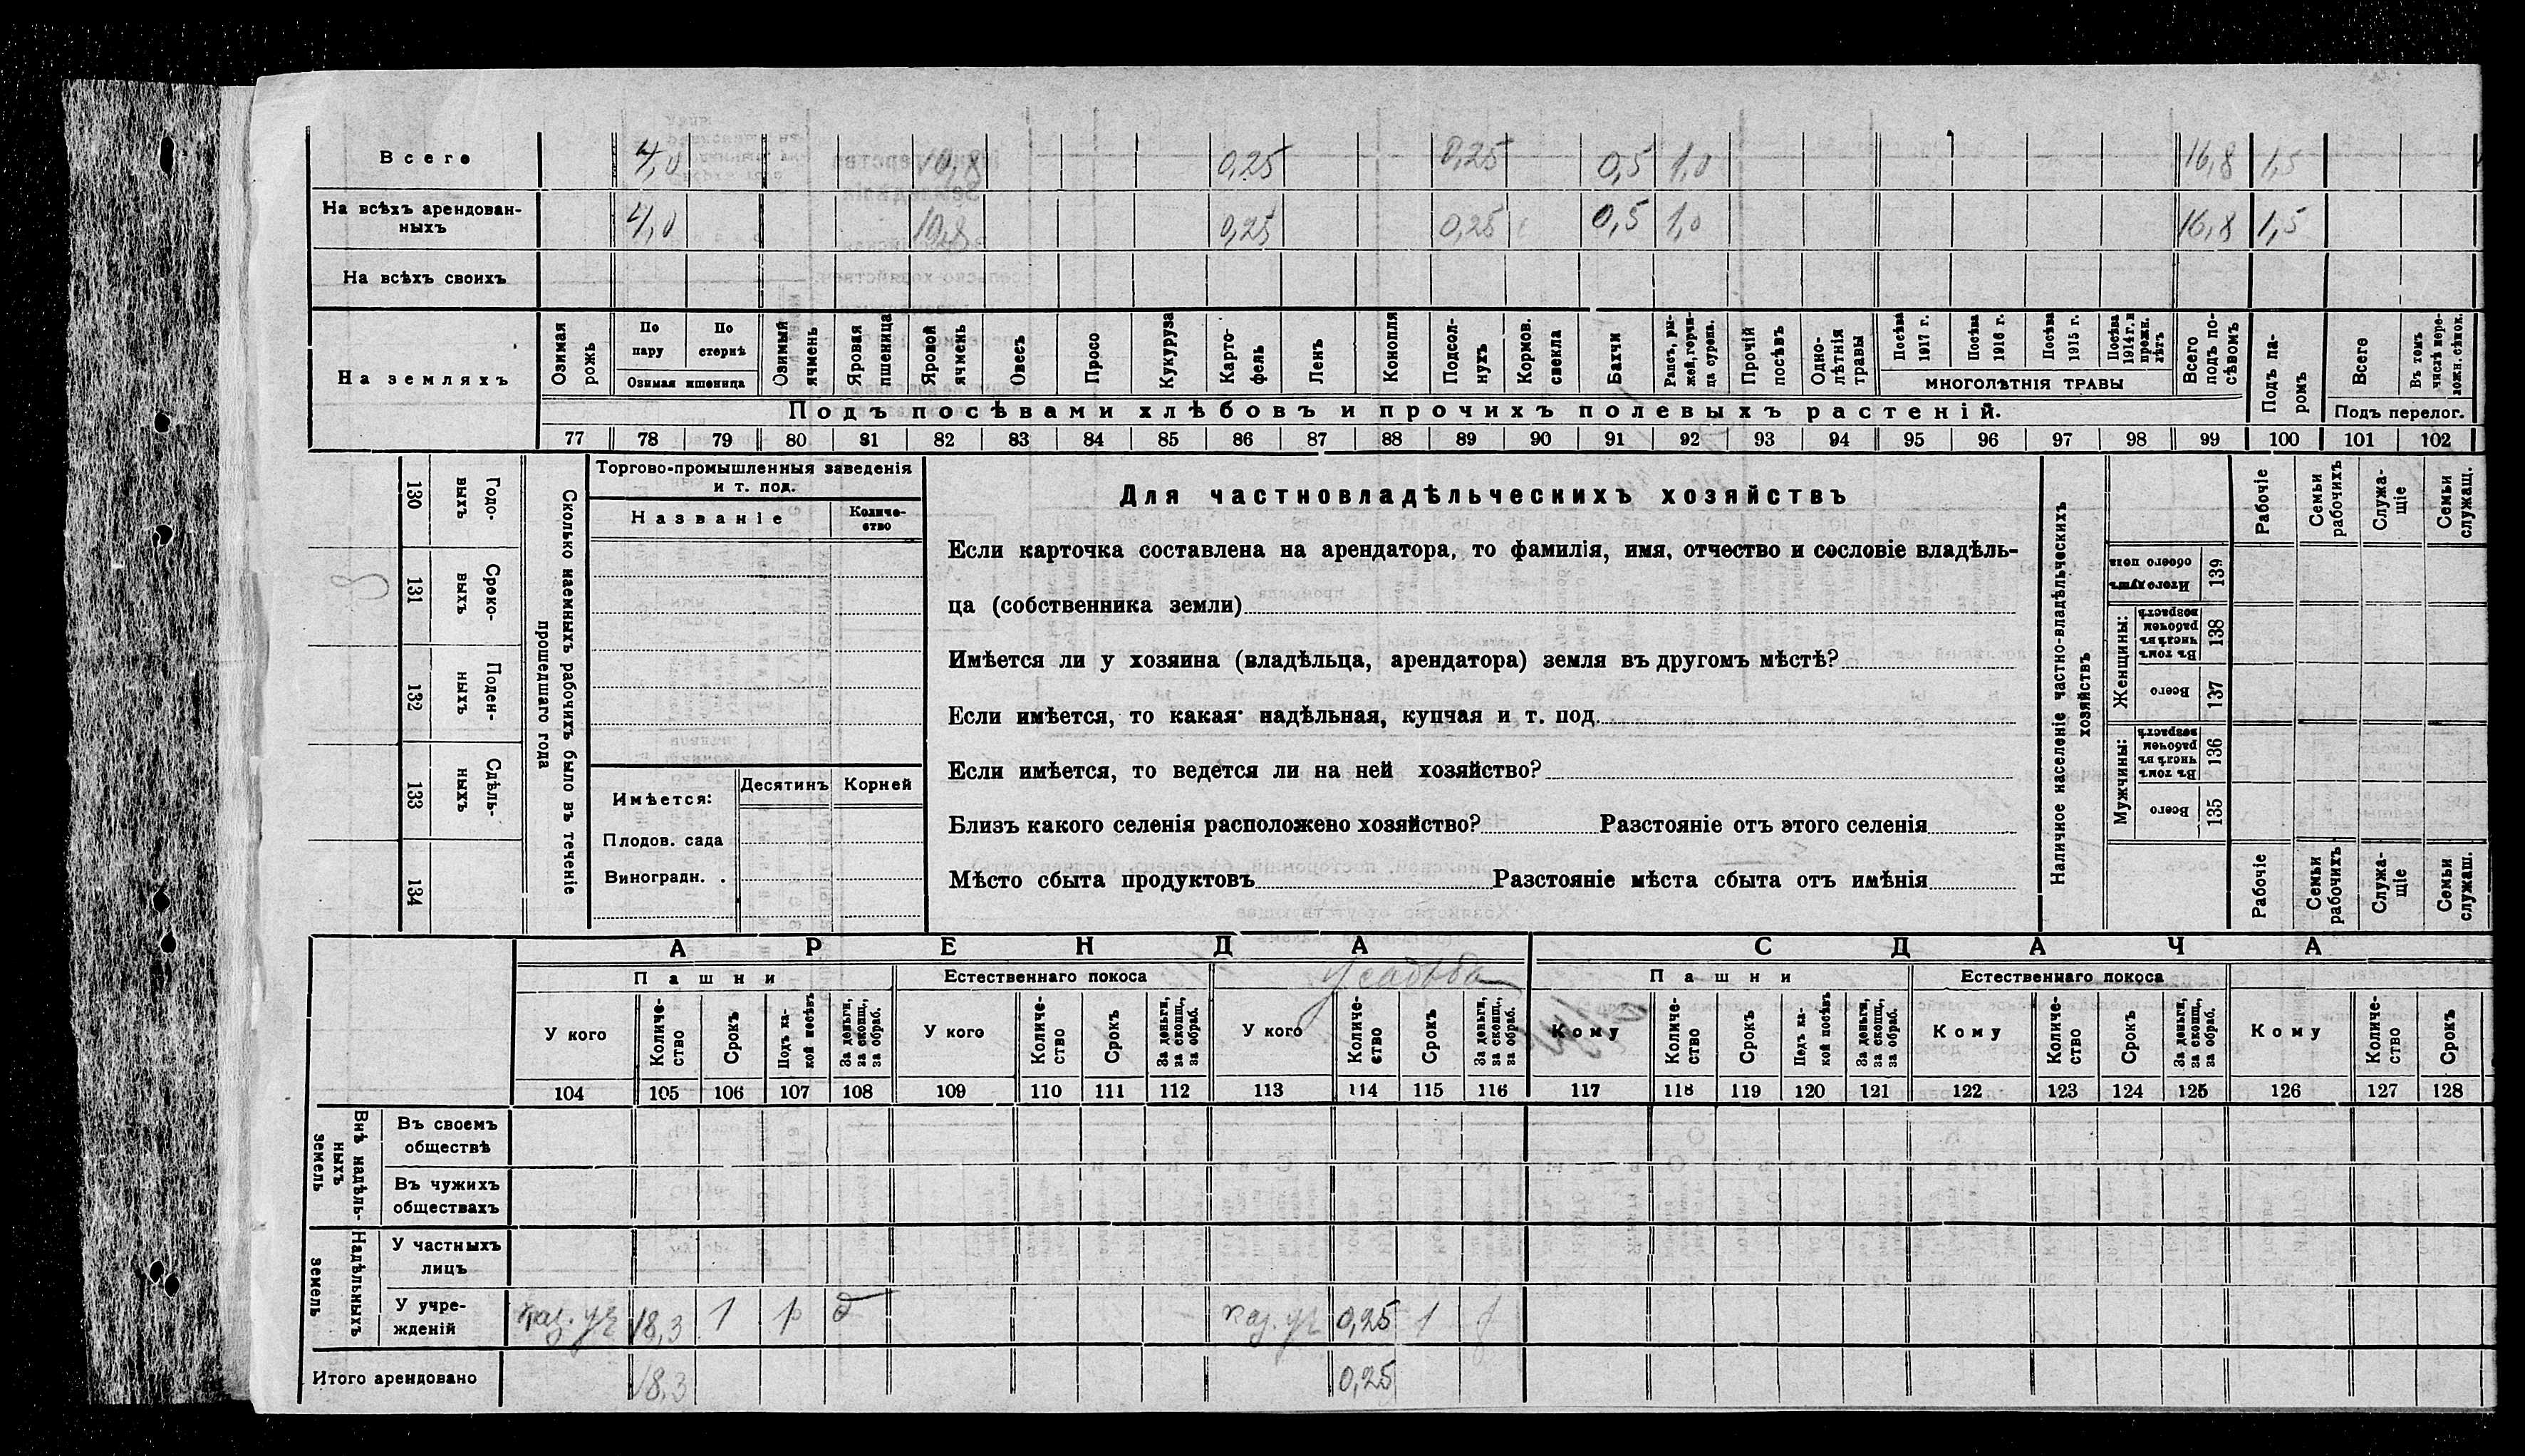 Всего 4,0 10,8 0,25 0,25 0,5 1,0 16,8 1,5
На всѣхъ арендован-
ныхъ 4,0 10,8 0,25 0,25 0,5 1,0 16,8 1,5
На всѣхъ своихъ
На земляхъ
Озимая рожь
По пару
По стернѣ
Озимая пшеница
Озимый ячмень
Яровая пшеница
Яровой ячмень
Овесъ
Просо
Кукуруза
Карто-
фель
Ленъ
Конопля
Подсол-
нухъ
Кормов. свекла
Бахчи
Рапсъ, ры-
жей, горчи-
ца сурепа.
Прочій посѣвъ
Одно-
лѣтнія травы
Посѣва 1917 г.
Посѣва 1916 г.
Посѣва 1915 г.
Посѣва 1914 г. и прежн. лѣтъ
МНОГОЛѢТНІЯ ТРАВЫ
Всего подъ по-
сѣвомъ
Подъ па-
ромъ
Всего
Въ томъ числѣ пере-
ложн. сѣнок.
Подъ перелог.
Подъ посѣвами хлѣбовъ и прочихъ полевыхъ растеній.
77 78 79 80 81 82 83 84 85 86 87 88 89 90 91 92 93 94 95 96 97 98 99 100 101 102
130 Годо-
выхъ
131 Сроко-
выхъ
132 Поден-
ныхъ
133 Сдѣль-
ныхъ
134
Сколько наемныхъ рабочихъ было въ теченіе
прошедшаго года
Торгово-промышленныя заведенія
и т. под.
Названіе
Количе-
ство
Имѣется: Десятинъ Корней
Плодов. сада
Виноградн. .
Для частновладѣльческихъ хозяйствъ
Если карточка составлена на арендатора, то фамилія, имя, отчество и сословіе владѣль-
ца (собственника земли)
Имѣется ли у хозяина (владѣльца, арендатора) земля въ другомъ мѣстѣ?
Если имѣется, то какая: надѣльная, купчая и т. под.
Если имѣется, то ведется ли на ней хозяйство?
Близъ какого селенія расположено хозяйство? Разстояніе отъ этого селенія
Мѣсто сбыта продуктовъ Разстояніе мѣста сбыта отъ имѣнія
Наличное населеніе частно-владѣльческихъ
хозяйствъ
Рабочіе
Семьи рабочихъ
Служа-
щіе
Семьи служащ.
Итого душъ обоего пола 139
Женщины:
Въ томъ числѣ въ рабочемъ возрастѣ 138
Всего 137
Мужчины:
Въ томъ числѣ въ рабочемъ возрастѣ 136
Всего 135
Рабочіе
Семьи рабочихъ
Служа-
щіе
Семьи служащ.
АРЕНДА СДАЧА
Пашни Естественнаго покоса Усадьба Пашни Естественнаго покоса
У кого
Количе-
ство
Срокъ
Подъ ка-
кой посѣвъ
За деньги, за скопщ., за обраб.
У кого
Количе-
ство
Срокъ
За деньги, за скопщ., за обраб.
У кого
Количе-
ство
Срокъ
За деньги, за скопщ., за обраб.
Кому
Количе-
ство
Срокъ
Подъ ка-
кой посѣвъ
За деньги, за скопщ., за обраб.
Кому
Количе-
ство
Срокъ
За деньги, за скопщ., за обраб.
Кому
Количе-
ство
Срокъ
104 105 106 107 108 109 110 111 112 113 114 115 116 117 118 119 120 121 122 123 124 125 126 127 128
Внѣ надѣль-
ныхъ
земель
Въ своемъ
обществѣ
Въ чужихъ
обществахъ
Надѣльныхъ
земель
У частныхъ
лицъ
У учре-
жденій каз. уч 18,3 1 р д каз. уч 0,25 1
Итого арендовано 18,3 0,25